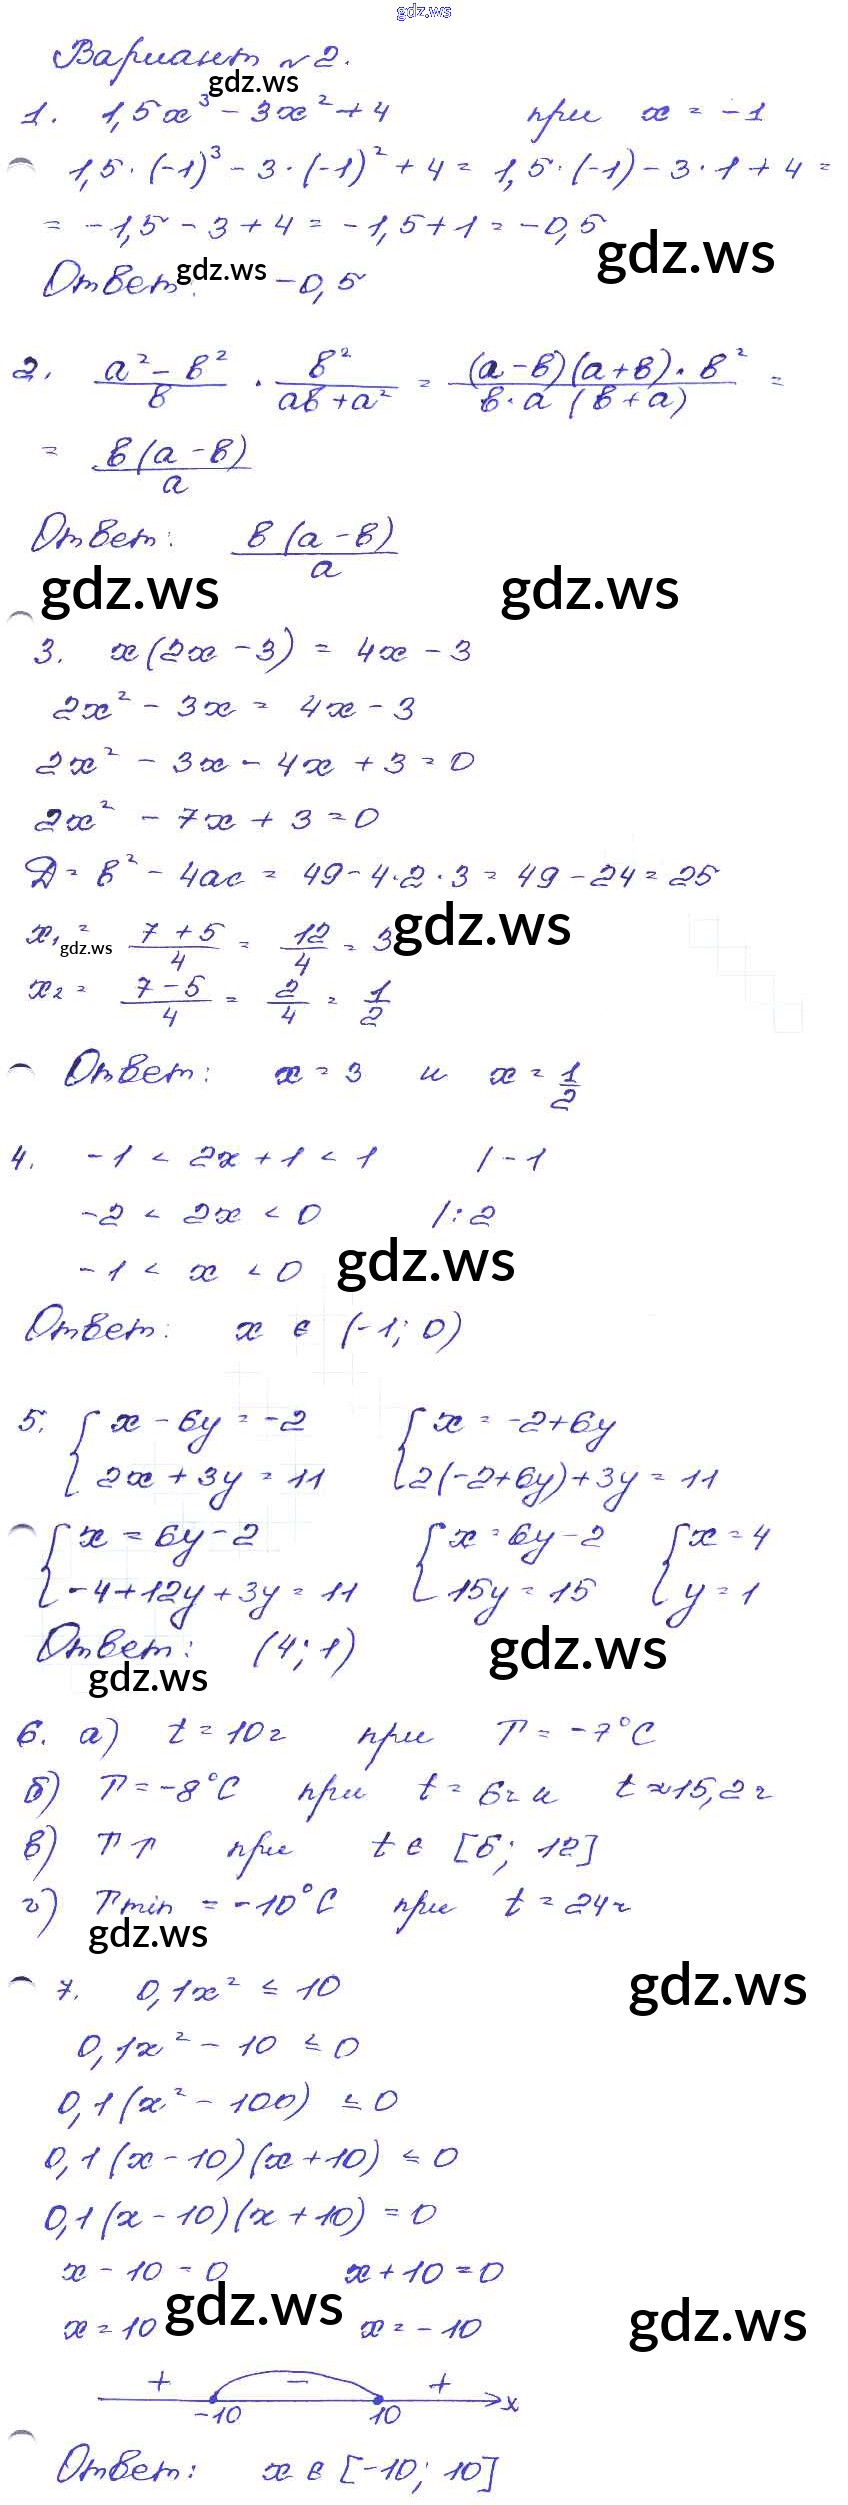 gdz.ws
Вариант №2.
gdz.ws
1. 1,5x³ - 3x² + 4 при x = -1
1,5·(-1)³ - 3·(-1)² + 4 = 1,5·(-1) - 3·1 + 4 =
= -1,5 - 3 + 4 = -1,5 + 1 = -0,5
gdz.ws
Ответ: -0,5
gdz.ws
2. (a² - b²)/b · b²/(ab + a²) = ((a - b)(a + b)·b²)/(b·a(b + a)) =
= b(a - b)/a
Ответ: b(a - b)/a
gdz.ws gdz.ws
3. x(2x - 3) = 4x - 3
2x² - 3x = 4x - 3
2x² - 3x - 4x + 3 = 0
2x² - 7x + 3 = 0
Д = b² - 4ac = 49 - 4·2·3 = 49 - 24 = 25
x₁ = (7 + 5)/4 = 12/4 = 3
gdz.ws gdz.ws
x₂ = (7 - 5)/4 = 2/4 = 1/2
Ответ: x = 3 и x = 1/2
4. -1 < 2x + 1 < 1 / - 1
-2 < 2x < 0 / : 2
-1 < x < 0
gdz.ws
Ответ: x ∈ (-1; 0)
5. { x - 6y = -2 { x = -2 + 6y
{ 2x + 3y = 11 { 2(-2 + 6y) + 3y = 11
{ x = 6y - 2 { x = 6y - 2 { x = 4
{ -4 + 12y + 3y = 11 { 15y = 15 { y = 1
Ответ: (4; 1)
gdz.ws gdz.ws
6. а) t = 10ч при T = -7°C
б) T = -8°C при t = 6ч и t ≈ 15,2ч
в) T ↑ при t ∈ [6; 12]
г) Tmin = -10°C при t = 24ч
gdz.ws
7. 0,1x² ≤ 10
gdz.ws
0,1x² - 10 ≤ 0
0,1(x² - 100) ≤ 0
0,1(x - 10)(x + 10) ≤ 0
0,1(x - 10)(x + 10) = 0
x - 10 = 0 x + 10 = 0
gdz.ws gdz.ws
x = 10 x = -10
+ - +
-10 10 x
Ответ: x ∈ [-10; 10]